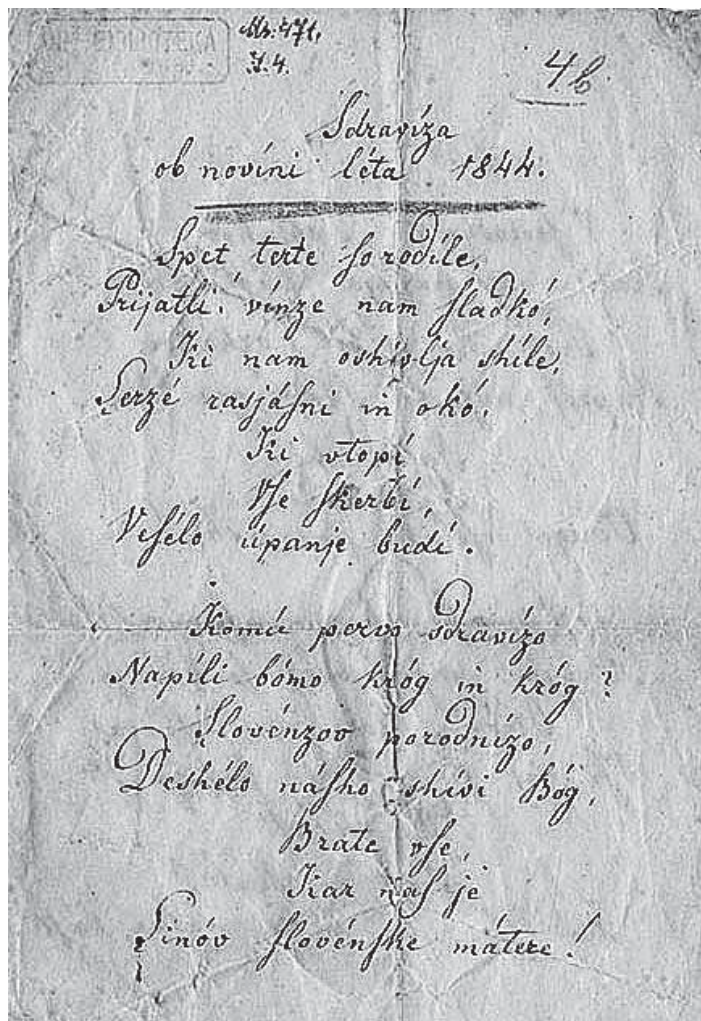 Ms. 471.
I. 4.
4b
Sdravíza
ob novíni léta 1844.
Spet terte ſo rodíle,
Prijatli! vínze nam ſladkó,
Ki nam oshívlja shíle,
Serzé rasjáſni in okó,
Ki vtopí
Vſe ſkerbí,
Veſélo úpanje budí.
Komú pervo sdravízo
Napíli bómo króg in króg?
Slovénzov porodnízo,
Deshélo náſho shívi Bóg,
Brate vſe,
Kar naſ je
Sinóv ſlovénſke mátere!